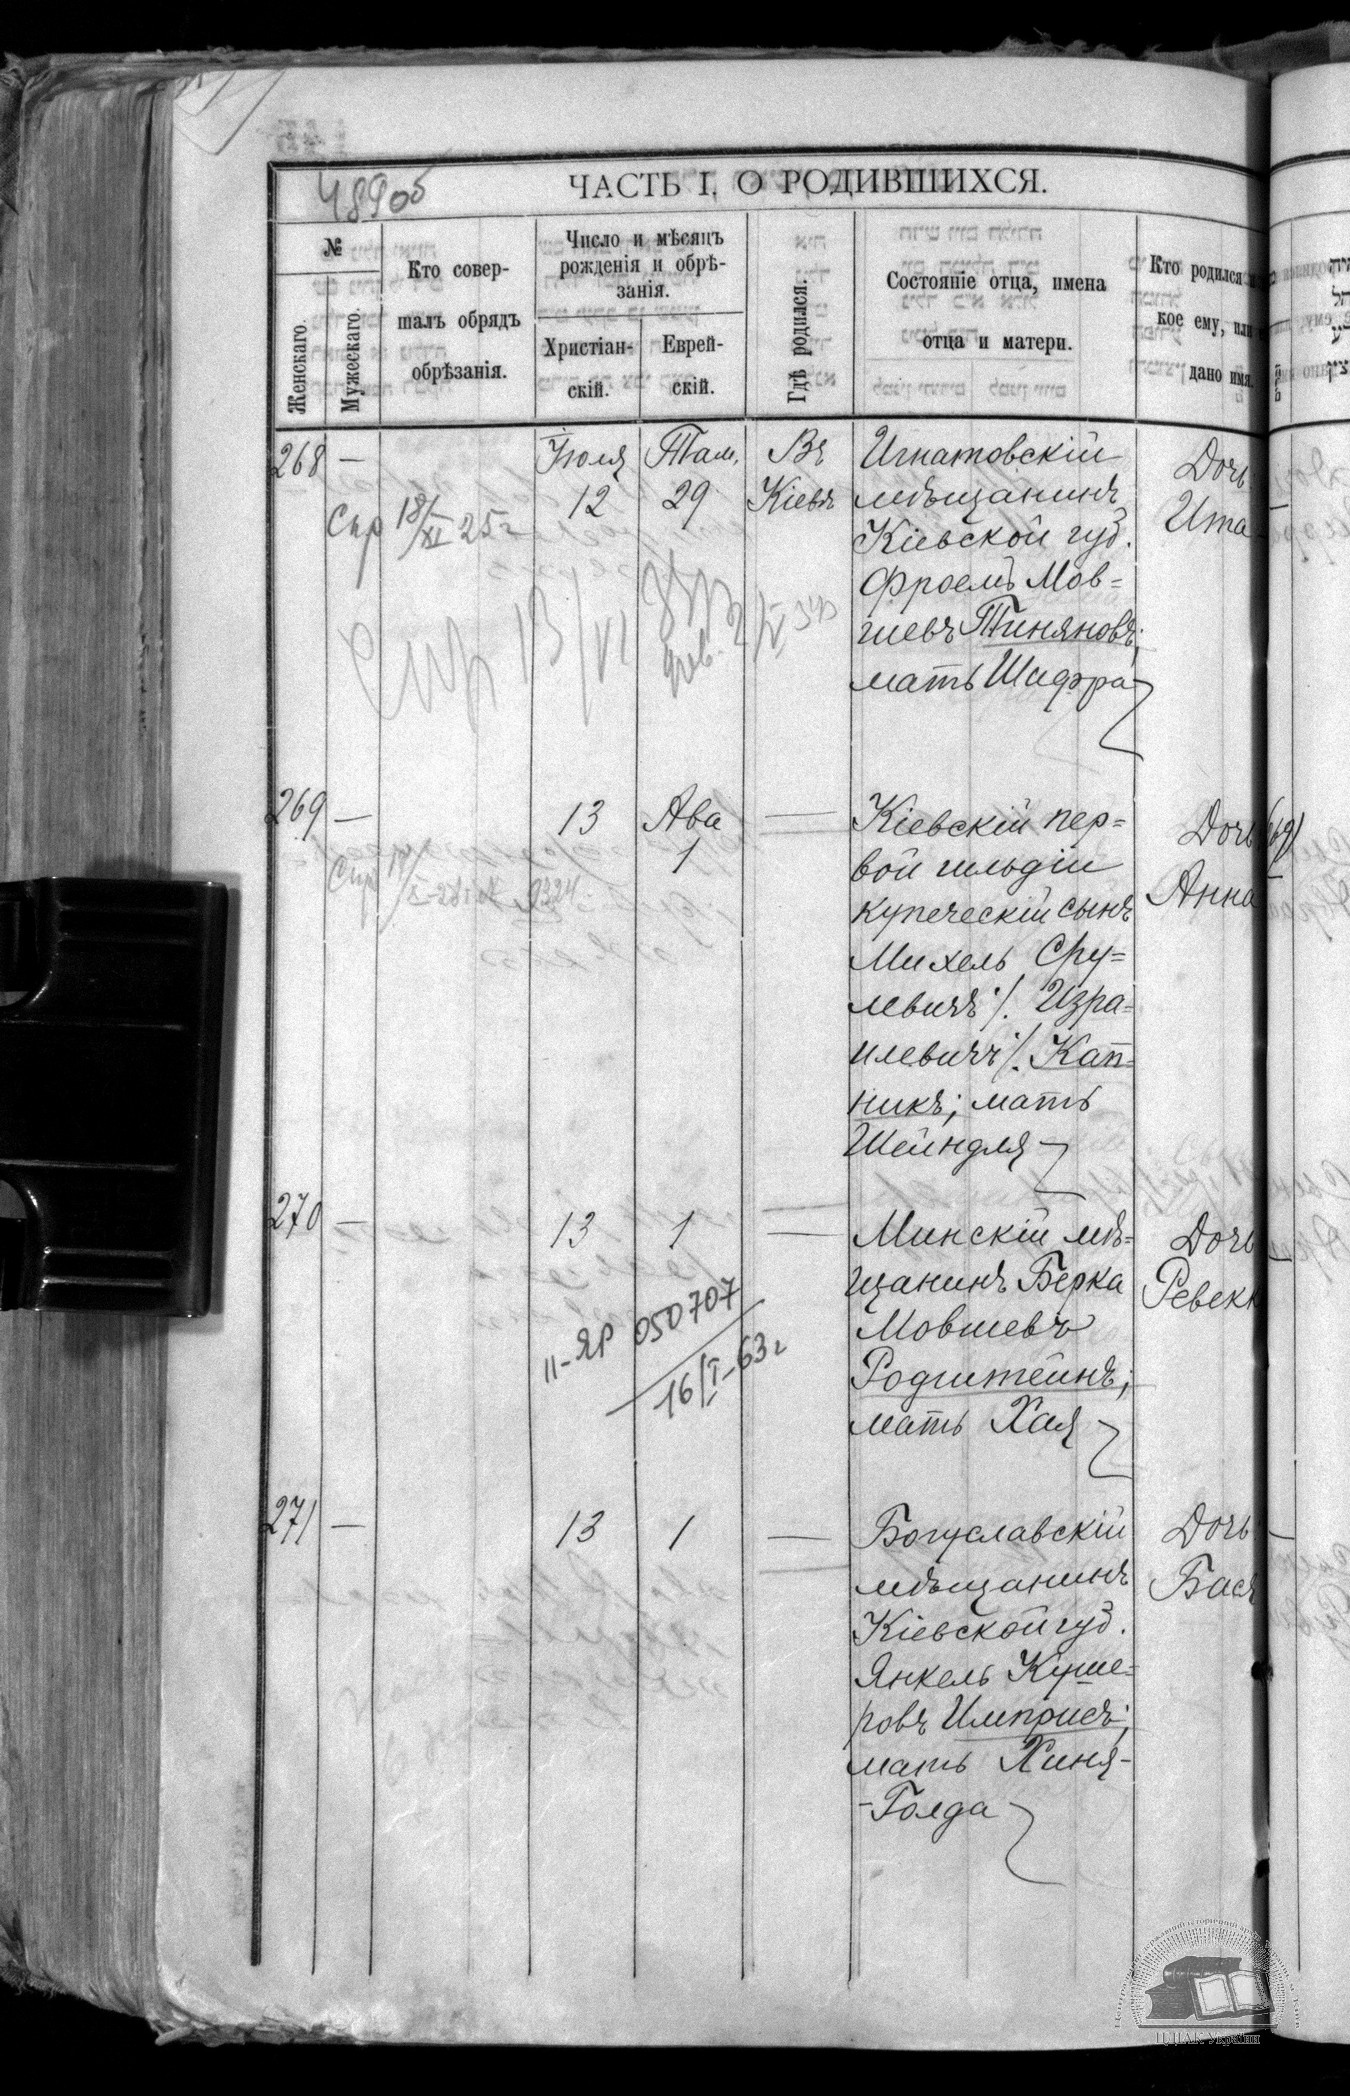 489об
ЧАСТЬ I. О РОДИВШИХСЯ.
№
Женскаго.
Мужескаго.
Кто совер-
шалъ обрядъ
обрѣзанія.
Число и мѣсяцъ
рожденія и обрѣ-
занія.
Христіан-
скій.
Еврей-
скій.
Гдѣ родился.
Состояніе отца, имена
отца и матери.
Кто родился и
кое ему, или
дано имя.
268
—
Іюля
12
Там.
29
Въ
Кіевѣ
Игнатовскій
мѣщанинъ
Кіевской губ.
Фроемъ Мов-
шевъ Тиняновъ;
мать Шифра
Дочь
Ита
Спр 18/XI 25г
Спр 13/VI
269
—
13
Ава
1
—
Кіевскій пер-
вой гильдіи
купеческій сынъ
Михель Сру-
левичъ /. Изра-
илевичъ /. Кап-
никъ; мать
Шейндля
Дочь
Анна
Спр
270
—
13
1
—
Минскій мѣ-
щанинъ Берка
Мовшевъ
Родштейнъ;
мать Хая
Дочь
Ревекк
II-ЯР 050707
16/I-63г
271
—
13
1
—
Богуславскій
мѣщанинъ
Кіевской губ.
Янкель Куше-
ровъ Имприсъ;
мать Хиня-
-Голда
Дочь
Бася
ЦДІАК України